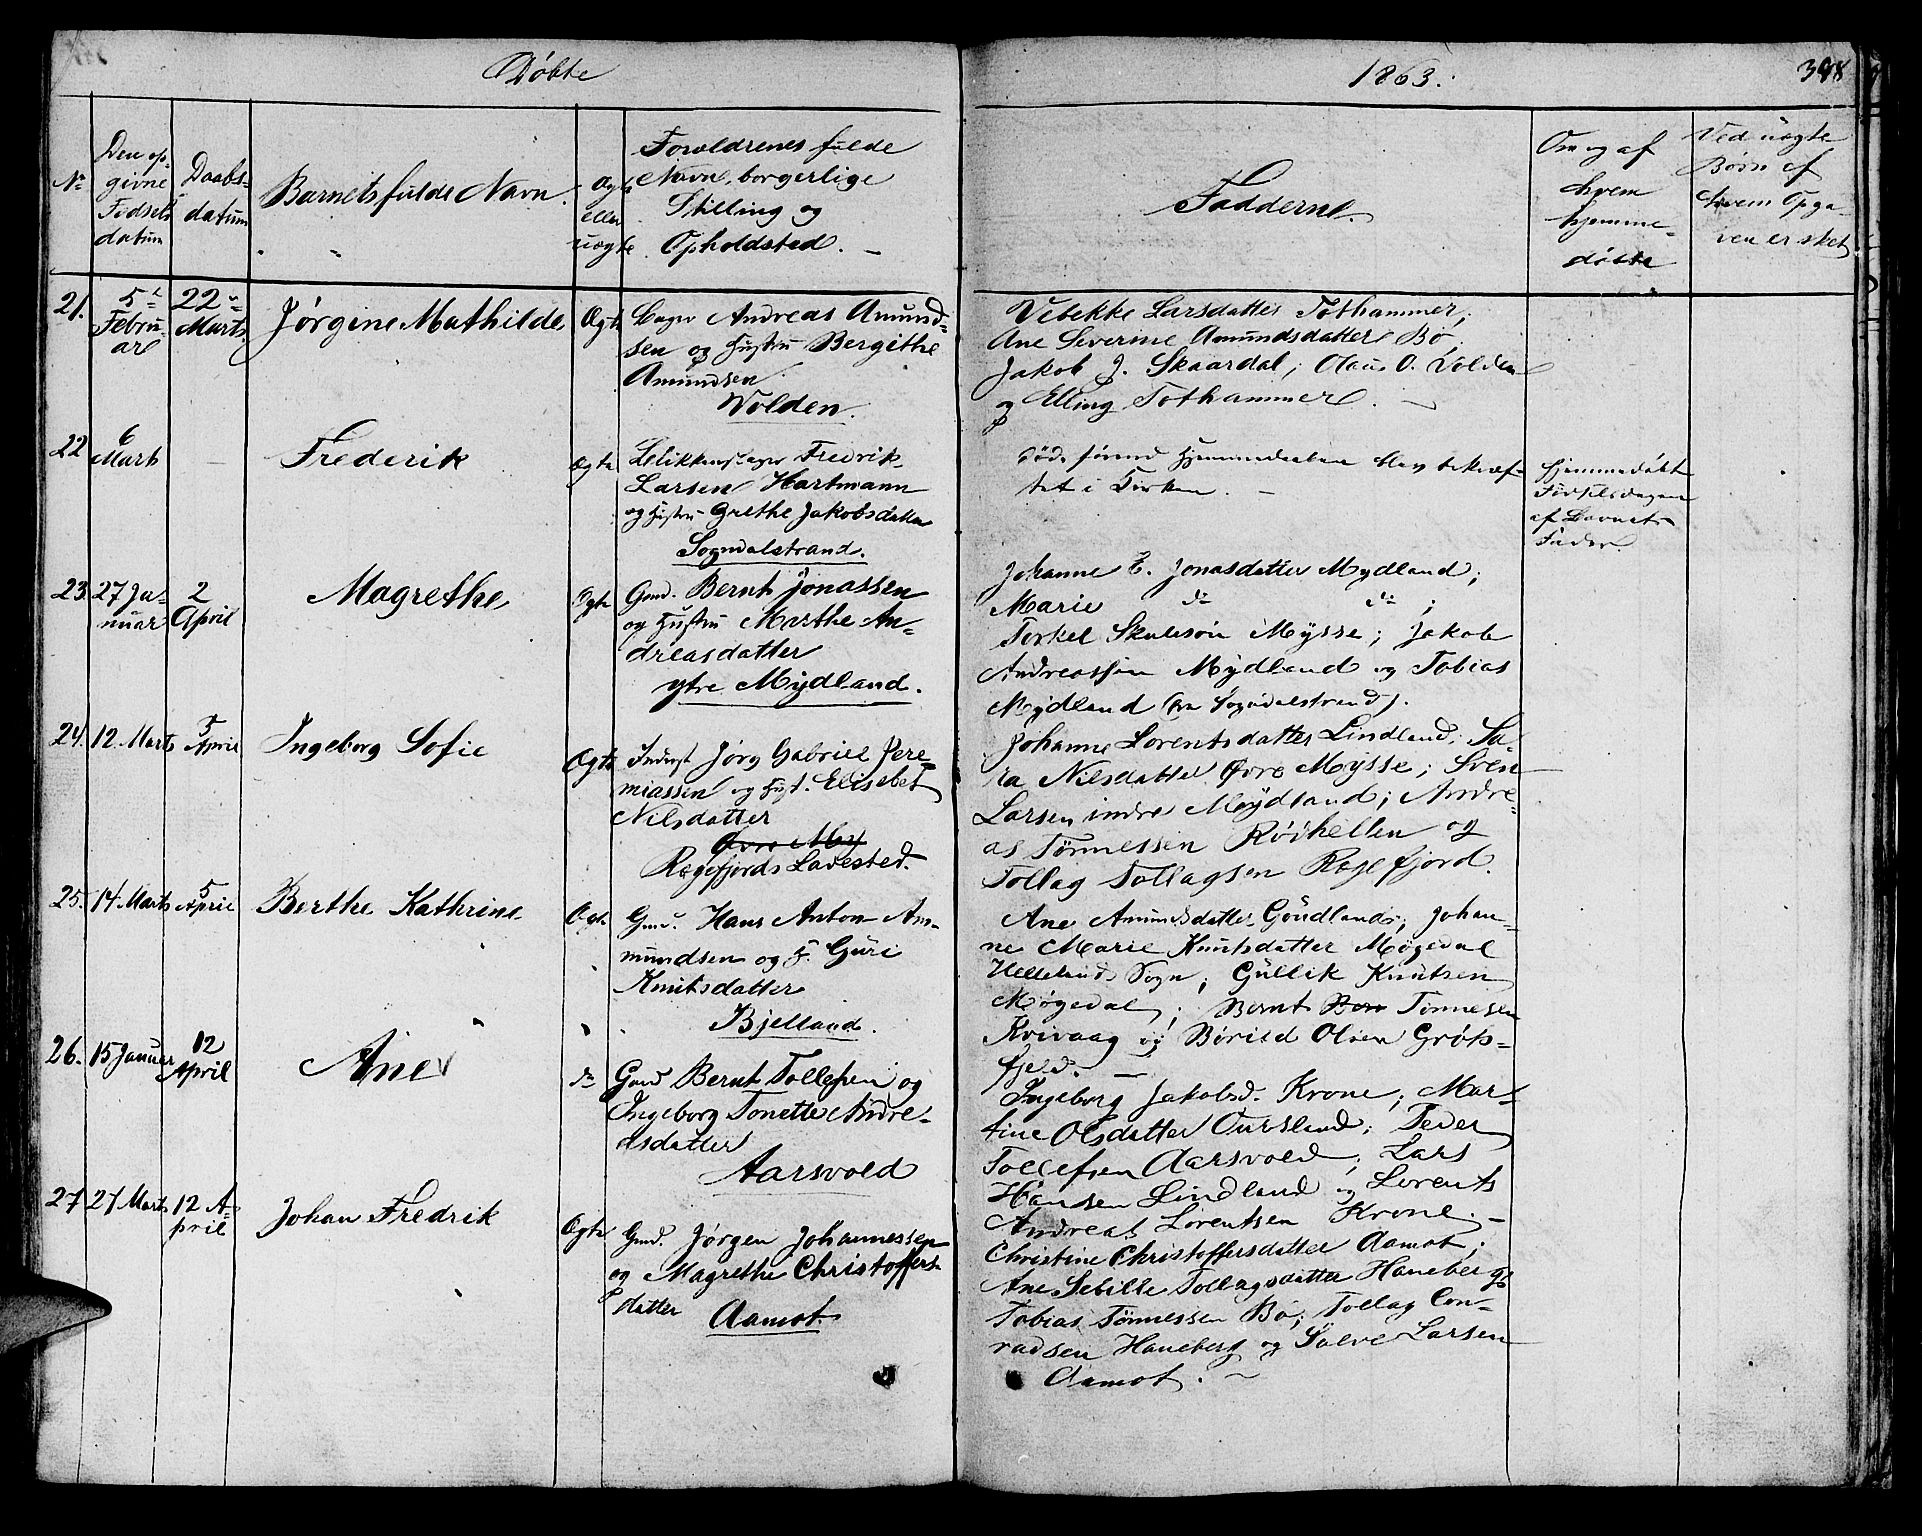 Døbte
1863.
398
No
Den op-
givne
Fødsels
datum
Daabs-
datum
Barnets fulde Navn.
Ægte
eller
uægte
Forældrenes fulde
Navn, borgerlige
Stilling og
Opholdsted. —
Fadderne.
Om og af
hvem
hjemme-
døbte
Ved uægte
Børn af
hvem Opga-
ven er sket
21.
5te
Febru
ar
22de
Marts.
Jørgine Mathilde
Ægte
Andreas Amund-
sen og Hustru Bergithe
Amundsen.
Volden.
Vebekke Larsdatter Tothammer,
Ane Severine Amundsdatter Bø,
Jakob J. Skaardal, Olaus O. Volden
og Elling Tothammer. —
22
6
Marts
—
Frederik
Ægte
Fredrik
Larsen Hartmann
og Hustru Grethe Jakobsdatter
Sogndalstrand.
Død førend Hjemmedaaben blev bekræf-
tet i Kirken. —
Hjemmedøbt
Fødselsdagen
af Barnets
Fader.
23.
27 Ja-
nuar
2
April
Magrethe
Ægte
Gmd. Bernt Jonassen
og Hustru Marthe An-
dreasdatter
ytre Mydland.
Johanne E. Jonasdatter Mydland;
Marie do do ;
Torkel Skulesøn Mysse; Jakob
Andreassen Mydland og Tobias
Mydland (fra Sogndalstrand).
24.
12 Marts
5
April
Ingeborg Sofie
Ægte
Inderst Jørg Gabriel Jere-
miassen og Hust. Elisebet
Nilsdatter
Øvre My
Rægefjords Ladested.
Johanne Lorentsdatter Lindland; Sa-
ra Nilsdatter Øvre Mysse; Sven
Larsen indre Møydland; Andre-
as Tønnessen Røikellen og
Tollag Tollagsen Rægefjord.
25.
14 Marts
5
April
Berthe Kathrine
Ægte
Gmd. Hans Anton Am-
mundsen og H. Guri
Knutsdatter
Bjelland.
Ane Amundsdatter Gundland; Johan-
ne Marie Knutsdatter Møgedal
Helleland Sogn; Gullik Knutsen
Møgedal; Bernt Ber Tønnesen
Kvivaag og Børild Olsen Grøs-
fjeld. —
26.
15 Januar
12
April
Ane
do
Gmd Bernt Tollefsen og
Ingeborg Tonette Andre-
asdatter
Aarsvold
Ingeborg Jakobsd. Krone; Mar-
tine Olsdatter Oursland; Peder
Tollefsen Aarsvold; Lars
Hansen Lindland og Lorents
Andreas Lorentsen Krone. —
27
21 Marts
12 A-
pril
Johan Fredrik
Ægte
Gmd. Jørgen Johannessen
og Magrethe Christoffers-
datter
Aamot.
Christine Christoffersdatter Aamot;
Ane Sebille Tollagsdatter Haneberg;
Tobias Tønnessen Bø; Tollag Con-
radsen Haneberg og Salve Larsen
Aamot. —